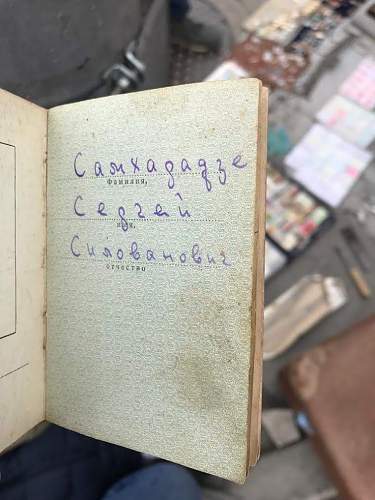 Самхарадзе
фамилия,
Сергей
имя,
Силованович
отчество